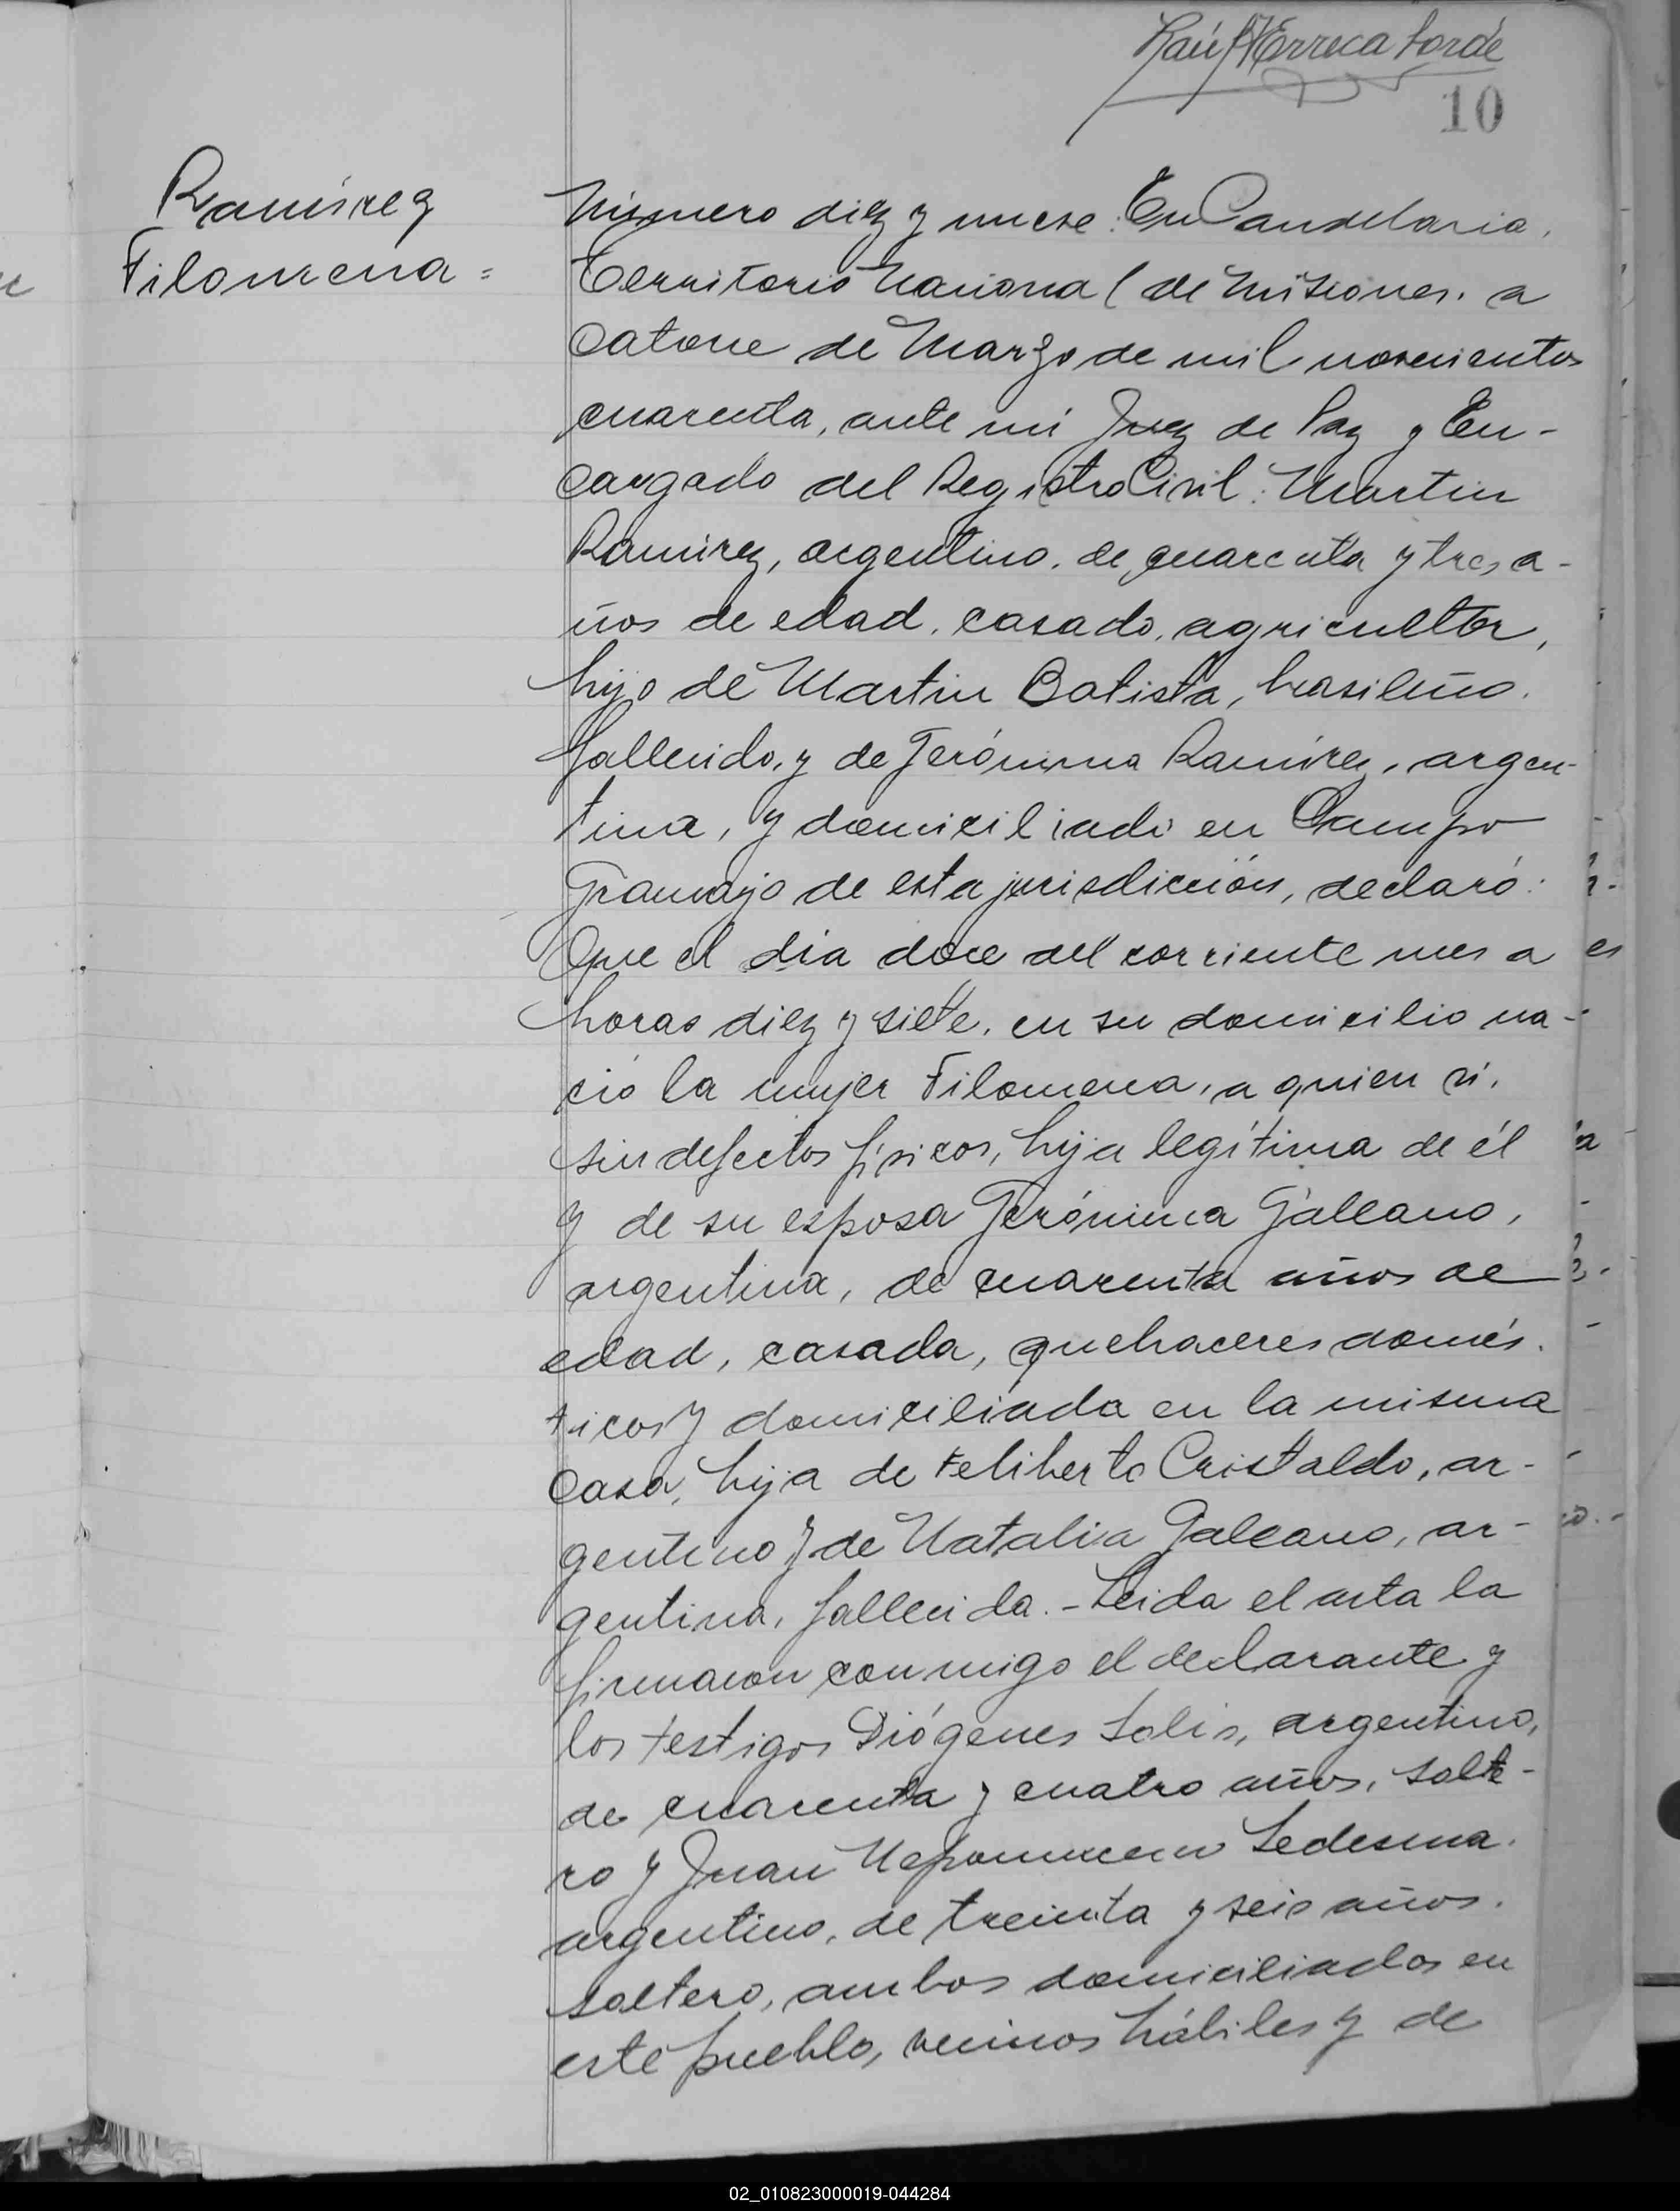 Raúl Erreca Lordé
10
Ramírez
Filomena =
Número diez y nueve: En Candelaria,
Territorio Nacional de Misiones, a
Catorce de Marzo de mil novecientos
cuarenta, ante mi Juez de Paz y En-
cargado del Registro Civil: Martin
Ramirez, argentino, de cuarenta y tres a-
ños de edad, casado, agricultor,
hijo de Martin Batista, brasileño,
fallecido, y de Jerónima Ramírez, argen-
tina, y domiciliado en Campo
Gramajo de esta jurisdicción, declaró:
Que el día doce del corriente mes a
horas diez y siete, en su domicilio na-
ció la mujer Filomena, a quien ví,
sin defectos físicos, hija legítima de él
y de su esposa Jerónima Galeano,
argentina, de cuarenta años de
edad, casada, quehaceres domés.
ticos y domiciliada en la misma
Casa, hija de Feliberto Cristaldo, ar-
gentino y de Natalia Galeano, ar-
gentina, fallecida. - Leida el acta la
firmaron conmigo el declarante y
los testigos Diógenes Solis, argentino,
de cuarenta y cuatro años, solte-
ro y Juan Nepomuceno Ledesma,
argentino, de treinta y seis años,
soltero, ambos domiciliados en
este pueblo, vecinos hábiles y de
02_010823000019-044284